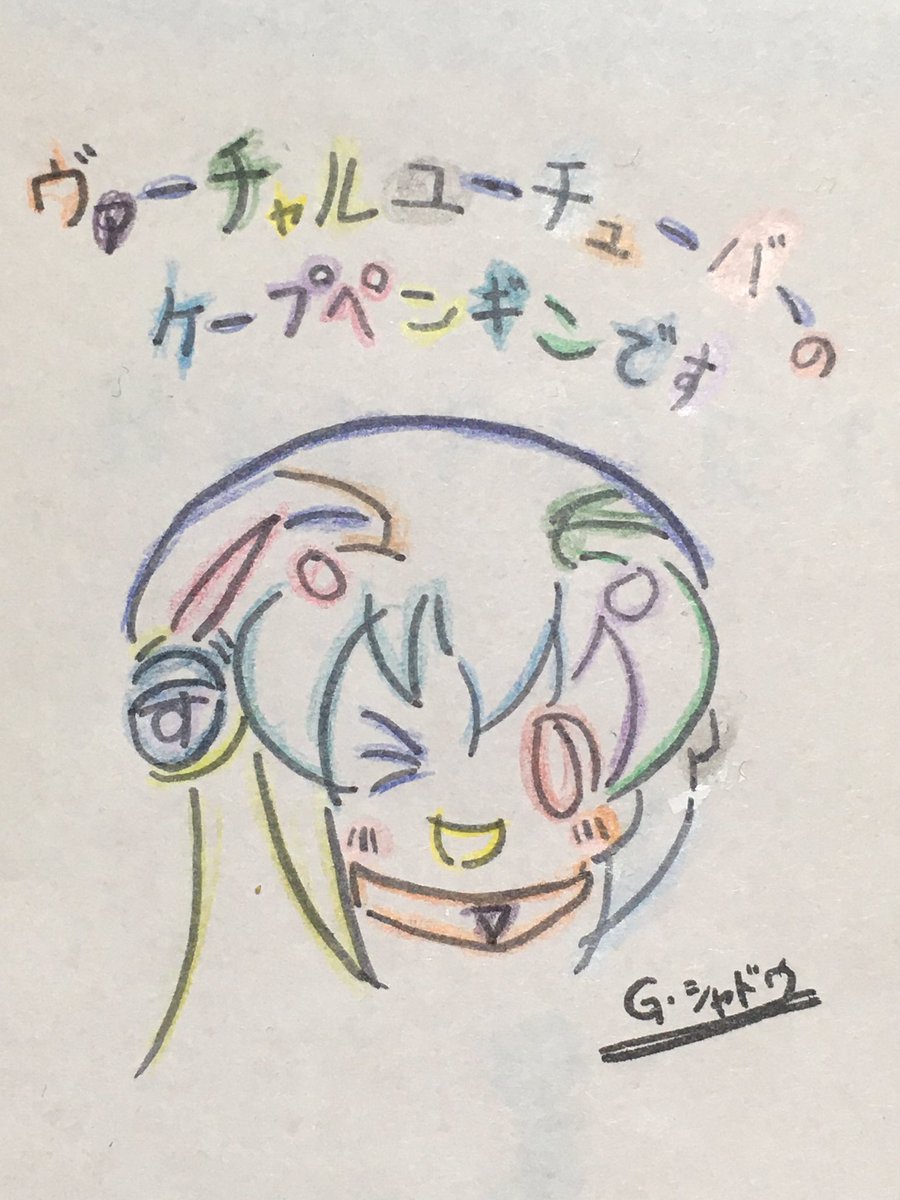 ヴァーチャルユーチューバーの
ケープペンギンです
す
G.シャドウ